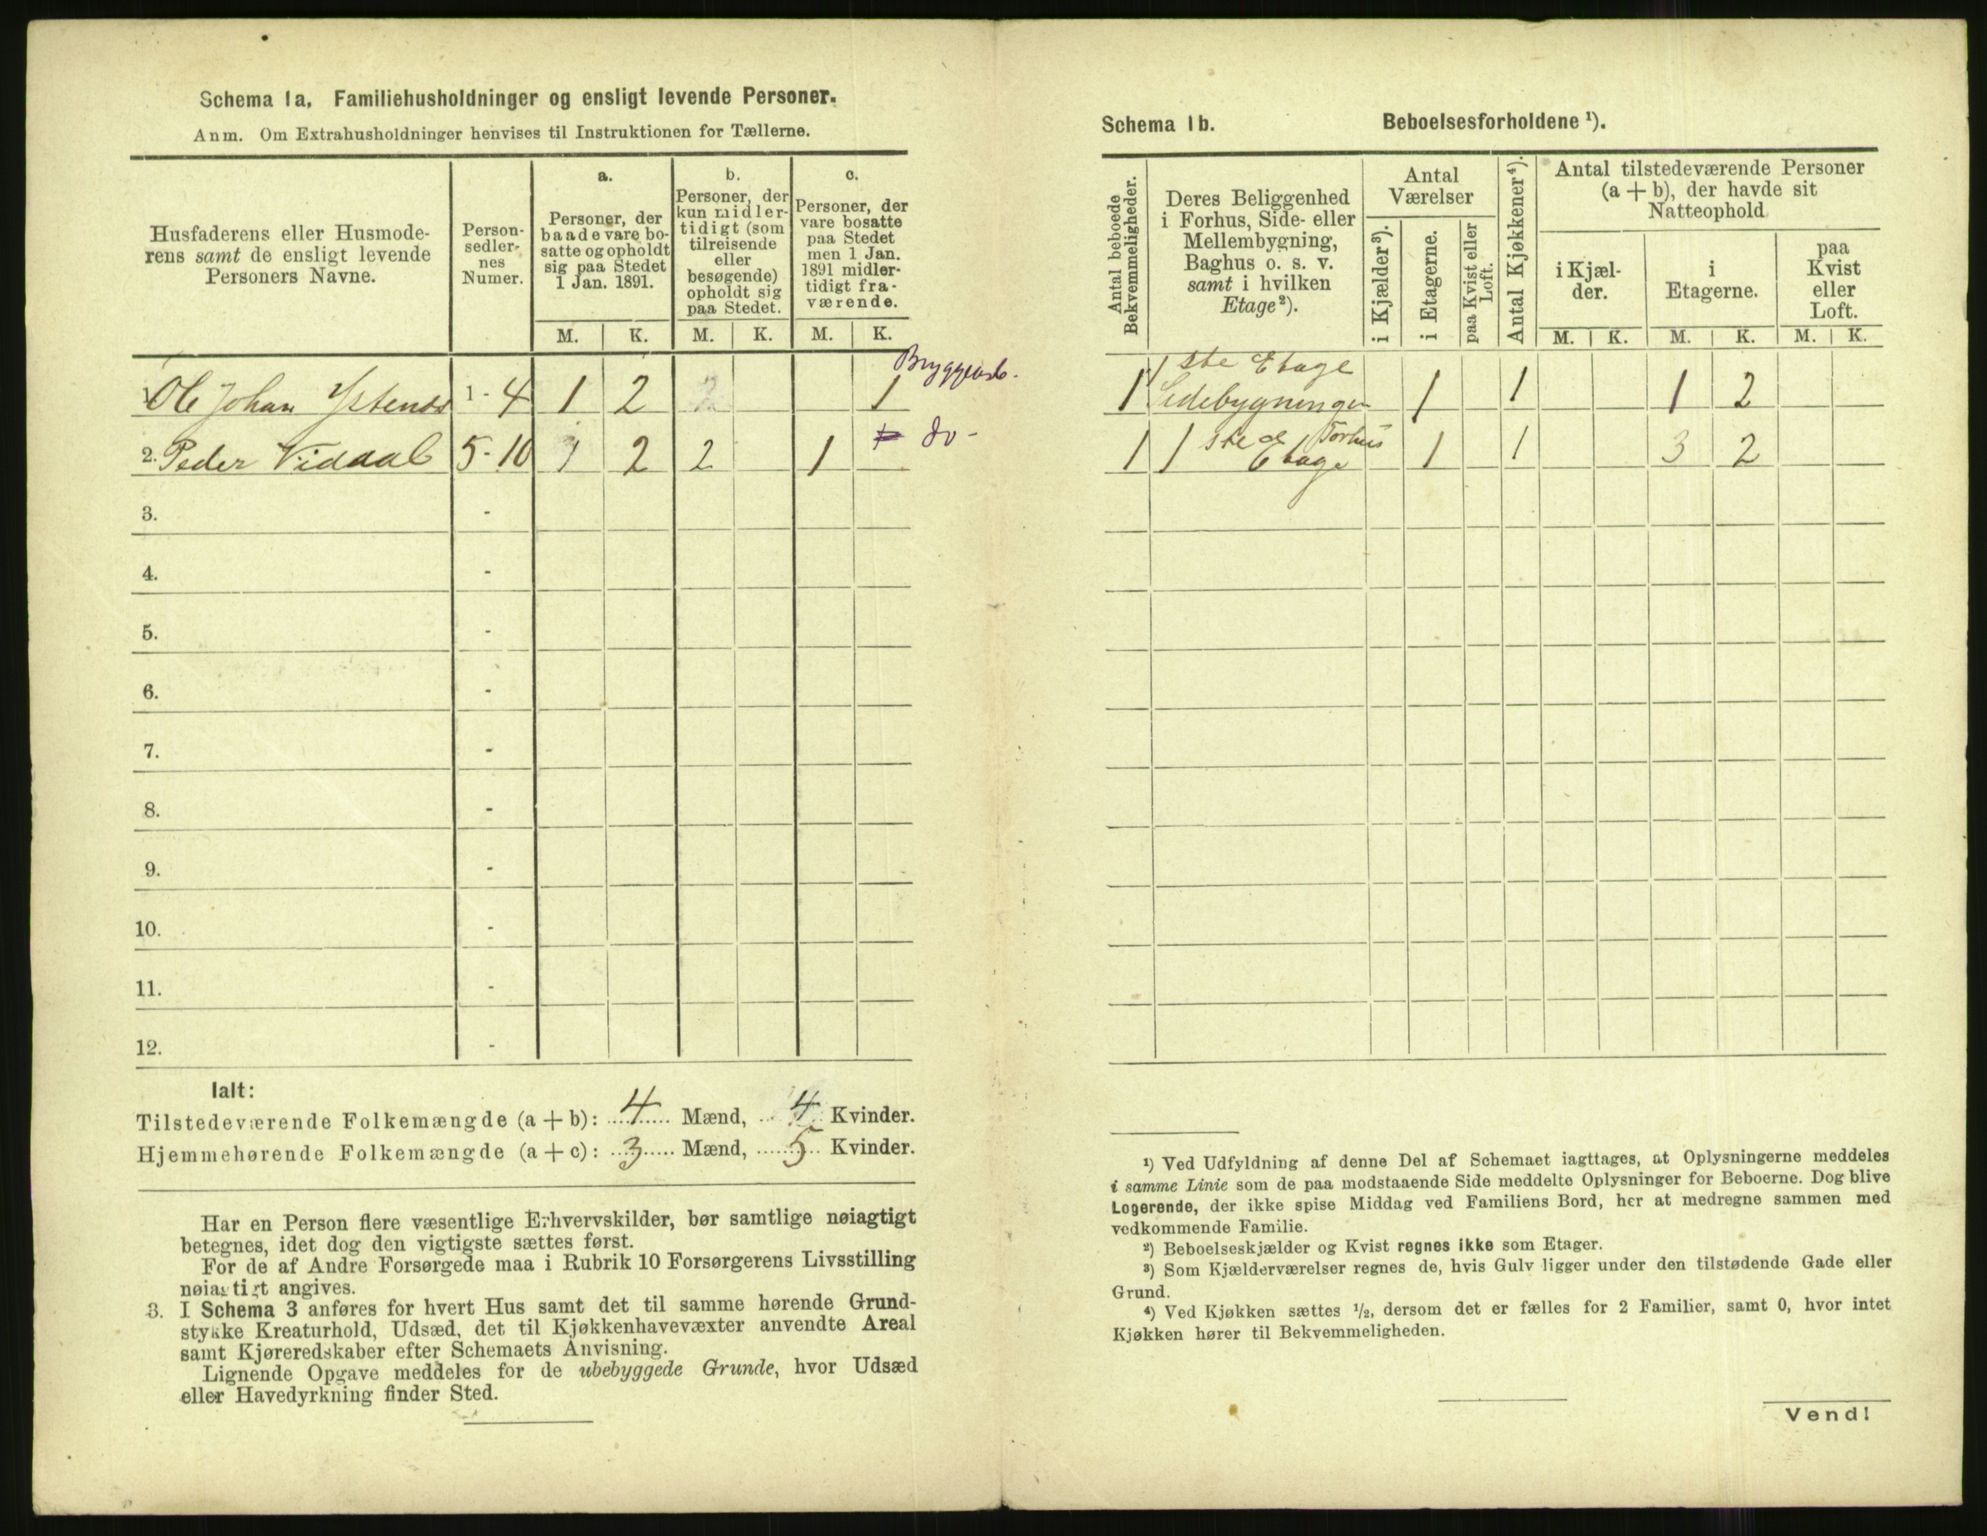 Schema 1a. Familiehusholdninger og ensligt levende Personer.
Anm. Om Extrahusholdninger henvises til Instruktionen for Tællerne.
Husfaderens eller Husmode-
rens samt de ensligt levende
Personers Navne.
Person-
sedler-
nes
Numer.
a.
Personer, der
baade vare bo-
satte og opholdt
sig paa Stedet
1 Jan. 1891.
b.
Personer, der
kun midler-
tidigt (som
tilreisende
eller
besøgende)
opholdt sig
paa Stedet.
c.
Personer, der
vare bosatte
paa Stedet
men 1 Jan.
1891 midler-
tidigt fra-
værende.
M. K. M. K. M. K.
1. Ole Johan 1 - 4 1 2 2 1
2. Peder Vidaal 5 - 10 1 2 2 1 do -
3. -
4. -
5. -
6. -
7. -
8. -
9. -
10. -
11. -
12. -
Ialt:
Tilstedeværende Folkemængde (a + b): 4 Mænd, 4 Kvinder.
Hjemmehørende Folkemængde (a + c): 3 Mænd, 5 Kvinder.
Har en Person flere væsentlige Erhvervskilder, bør samtlige nøiagtigt
betegnes, idet dog den vigtigste sættes først.
For de af Andre Forsørgede maa i Rubrik 10 Forsørgerens Livsstilling
nøiagtigt angives.
3. I Schema 3 anføres for hvert Hus samt det til samme hørende Grund-
stykke Kreaturhold, Udsæd, det til Kjøkkenhavevæxter anvendte Areal
samt Kjøreredskaber efter Schemaets Anvisning.
Lignende Opgave meddeles for de ubebyggede Grunde, hvor Udsæd
eller Havedyrkning finder Sted.
Schema 1b. Beboelsesforholdene ¹).
Antal beboede
Bekvemmeligheder.
Deres Beliggenhed
i Forhus, Side- eller
Mellembygning,
Baghus o. s. v.
samt i hvilken
Etage²).
Antal
Værelser
i Kjælder³).
i Etagerne.
paa Kvist eller
Loft.
Antal Kjøkkener⁴).
Antal tilstedeværende Personer
(a + b), der havde sit
Natteophold
i Kjæl-
der.
i
Etagerne.
paa
Kvist
eller
Loft.
M. K. M. K. M. K.
1 1 ste Etage
Sidebygningen 1 1 1 2
1 1 ste Etage Forhus 1 1 3 2
¹) Ved Udfyldning af denne Del af Schemaet iagttages, at Oplysningerne meddeles
i samme Linie som de paa modstaaende Side meddelte Oplysninger for Beboerne. Dog blive
Logerende, der ikke spise Middag ved Familiens Bord, her at medregne sammen med
vedkommende Familie.
²) Beboelseskjælder og Kvist regnes ikke som Etager.
³) Som Kjælderværelser regnes de, hvis Gulv ligger under den tilstødende Gade eller
Grund.
⁴) Ved Kjøkken sættes ½, dersom det er fælles for 2 Familier, samt 0, hvor intet
Kjøkken hører til Bekvemmeligheden.
Vend!